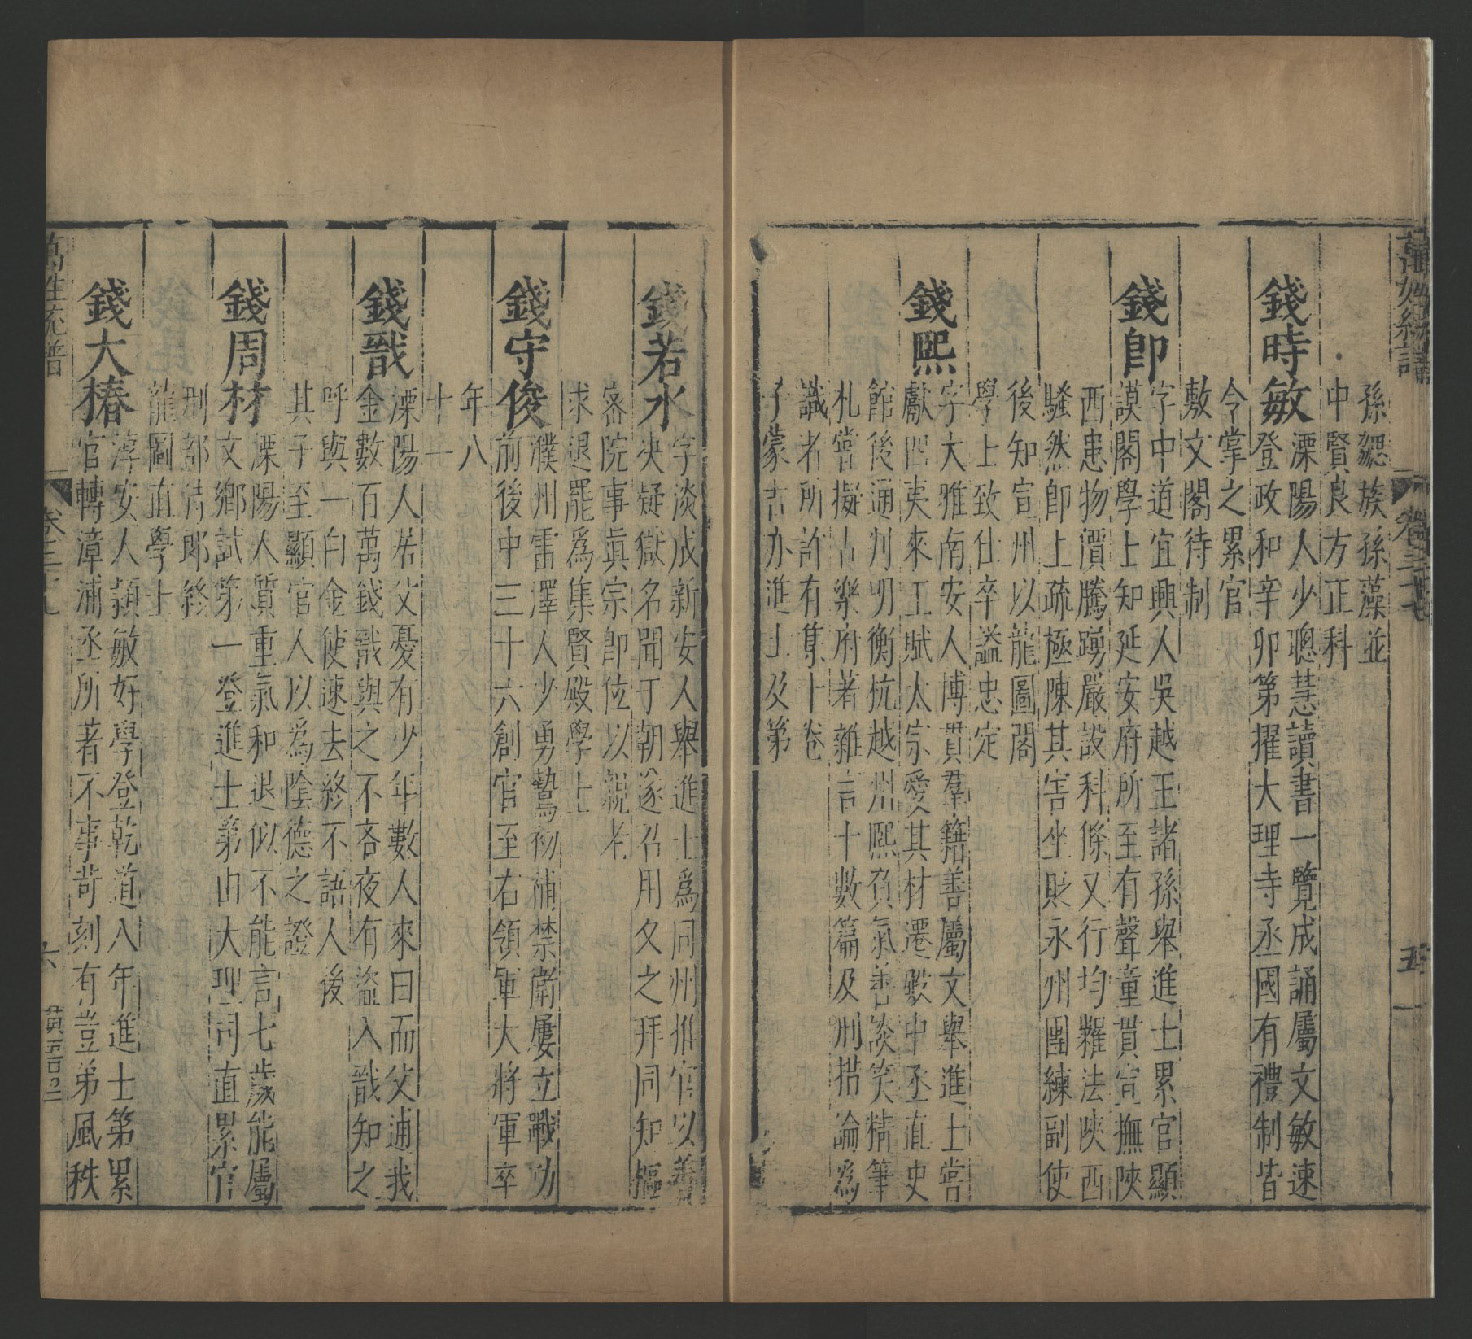 萬姓統譜 卷之二十七 五
孫勰族孫藻並
中賢良方正科
錢時敏 溧陽人少聰慧讀書一覽成誦屬文敏速
登政和辛卯第擢大理寺丞國有禮制皆
令掌之累官
敷文閣待制
錢即 字中道宜興人吳越王諸孫舉進士累官顯
謨閣學士知延安府所至有聲童貫宣撫陝
西患物價騰踴嚴設科條又行均糴法陝西
騷然即上疏極陳其害坐貶永州團練副使
後知宣州以龍圖閣
學士致仕卒謚忠定
錢熙 字大雅南安人博貫羣籍善屬文舉進士嘗
獻四夷來王賦太宗愛其材遷殿中丞直史
館後通判明衡杭越州熙負氣善談笑精筆
札嘗擬古樂府著雜言十數篇及刑措論為
識者所許有集十卷
子蒙吉亦進士及第
錢若水 字淡成新安人舉進士爲同州推官以善
决疑獄名聞于朝遂召用久之拜同知樞
密院事真宗即位以親老
求退罷爲集賢殿學士
錢守俊 濮州雷澤人少勇鷙初補禁衛屢立戰功
前後中三十六創官至右領軍大將軍卒
年八
十一
錢戩 溧陽人若父憂有少年數人來曰而父逋我
金數百萬錢戩與之不吝夜有盜入戩知之
呼與一白金使速去終不語人後
其子至顯官人以爲陰德之證
錢周材 溧陽人質重氣和退似不能言七歲能屬
文鄉試第一登進士第由大理司直累官
刑部侍郎終
龍圖直學士
錢大椿 淳安人頴敏好學登乾道八年進士第累
官轉漳浦丞所著不事苛刻有豈弟風秩
萬姓統譜 卷 六